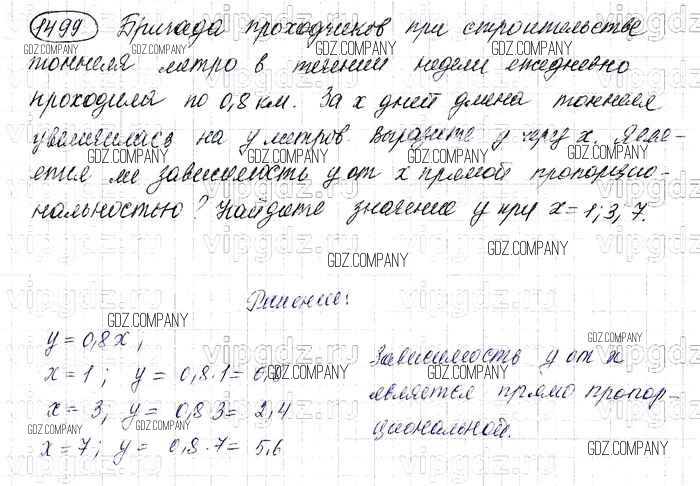 1499 Бригада проходчиков при строительстве
тоннеля метро в течении недели ежедневно
проходила по 0,8 км. За x дней длина тоннеля
увеличилась на y метров Выразите y через x. Явля-
ется ли зависимость y от x прямой пропорцио-
нальностью? Найдите значение y при x = 1; 3, 7.
Решение:
y = 0,8x;
x = 1; y = 0,8 · 1 = 0,8
x = 3; y = 0,8 · 3 = 2,4
x = 7; y = 0,8 · 7 = 5,6
Зависимость y от x
является прямо пропор-
циональной.
GDZ.COMPANY
vipgdz.ru